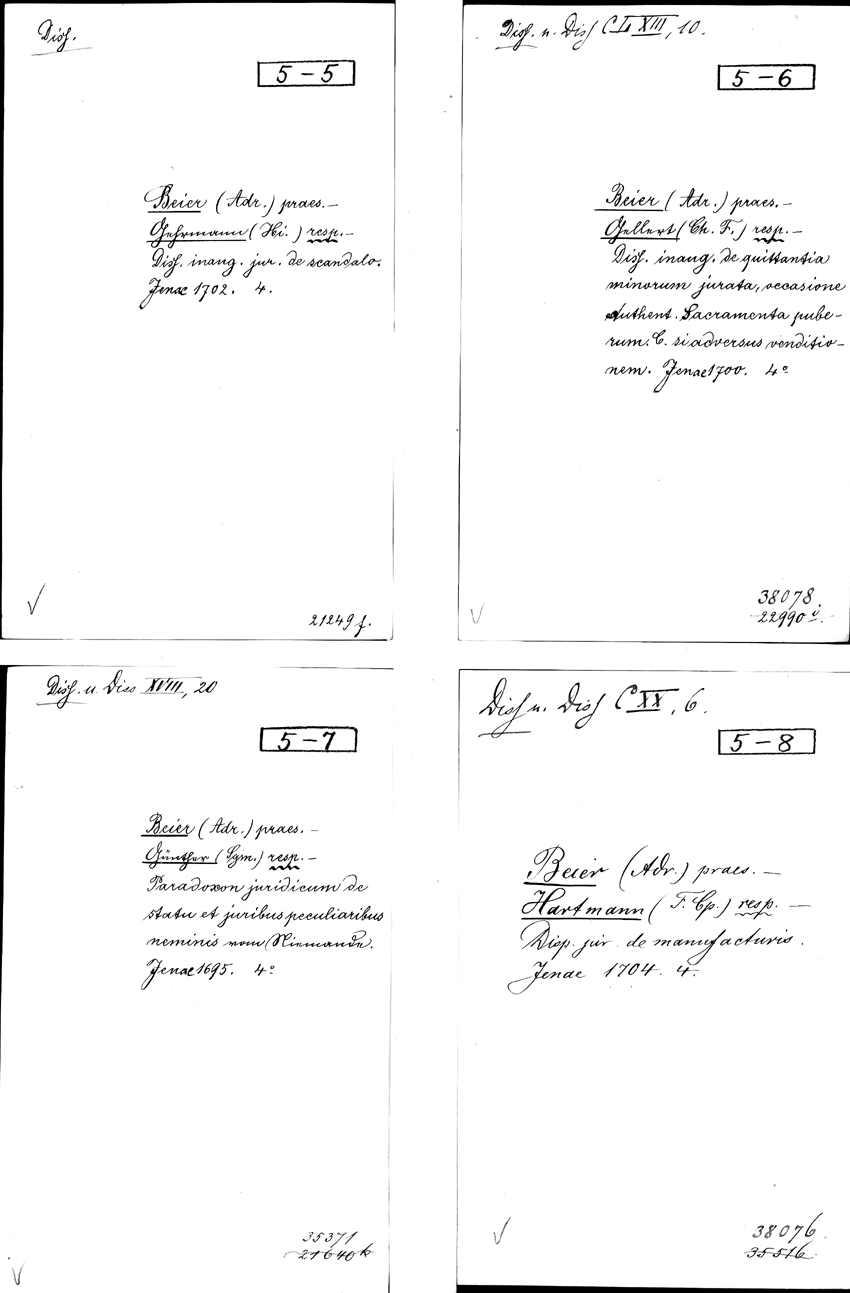 Diss.
5-5
Beier (Adr.) praes. —
Gehrmann (Hi.) resp. —
Diss. inaug. jur. de scandalo.
Jenae 1702. 4.
21249 f.
Diss. u. Diss CLXIII, 10.
5-6
Beier (Adr.) praes. —
Gellert (Ch. F.) resp. —
Diss. inaug. de quittantia
minorum jurata, occasione
Authent. Sacramenta pube-
rum. C. si adversus venditio-
nem. Jenae 1700. 4°
38078.
22990 i.
Diss. u. Diss XVIII, 20
5-7
Beier (Adr.) praes. —
Günther (Sgm.) resp. —
Paradoxon juridicum de
statu et juribus peculiaribus
neminis vom Niemande.
Jenae 1695. 4°
35371
21640 k
Diss u. Diss CXX, 6.
5-8
Beier (Adr.) praes. —
Hartmann (F. Cp.) resp. —
Disp. jur. de manufacturis.
Jenae 1704. 4.
38076.
35516.